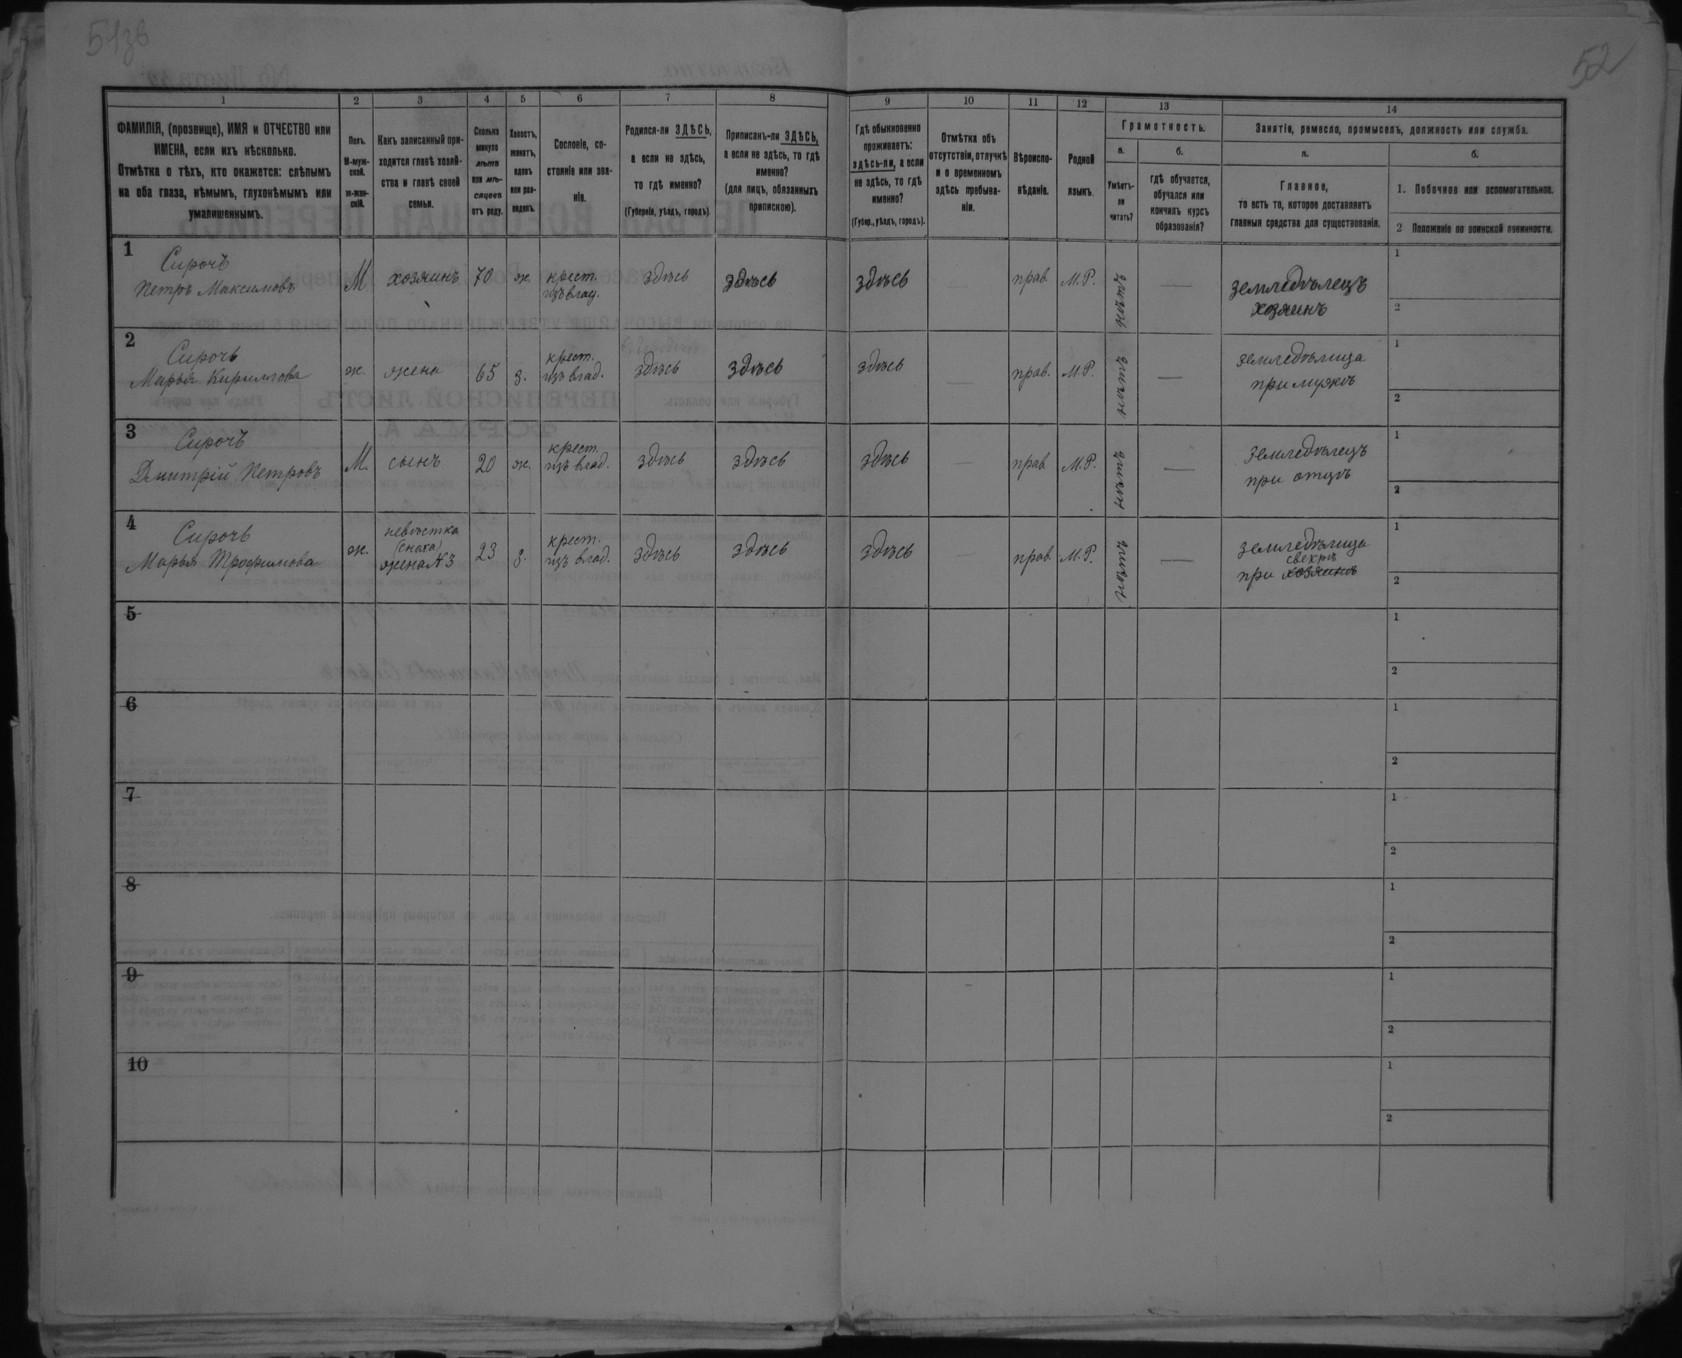 51зв
52
1
2
3
4
5
6
7
8
9
10
11
12
13
14
ФАМИЛІЯ, (прозвище), ИМЯ и ОТЧЕСТВО или
ИМЕНА, если ихъ нѣсколько.
Отмѣтка о тѣхъ, кто окажется: слѣпымъ
на оба глаза, нѣмымъ, глухонѣмымъ или
умалишеннымъ.
Полъ.
М-муж-
ской.
ж-жен-
скій.
Какъ записанный при-
ходится главѣ хозяй-
ства и главѣ своей
семьи.
Сколько
минуло
лѣтъ
или мѣ-
сяцевъ
отъ роду.
Холостъ,
женатъ,
вдовъ
или раз-
веденъ.
Сословіе, со-
стояніе или зва-
ніе.
Родился-ли ЗДѢСЬ,
а если не здѣсь,
то гдѣ именно?
(Губернія, уѣздъ, городъ).
Приписанъ-ли ЗДѢСЬ,
а если не здѣсь, то гдѣ
именно?
(для лицъ, обязанныхъ
припискою).
Гдѣ обыкновенно
проживаетъ:
здѣсь-ли, а если
не здѣсь, то гдѣ
именно?
(Губер., уѣздъ, городъ).
Отмѣтка объ
отсутствіи, отлучкѣ
и о временномъ
здѣсь пребыва-
ніи.
Вѣроиспо-
вѣданіе.
Родной
языкъ.
Грамотность.
а.
Умѣетъ-
ли
читать?
б.
гдѣ обучается,
обучался или
кончилъ курсъ
образованія?
Занятіе, ремесло, промыселъ, должность или служба.
а.
Главное,
то есть то, которое доставляетъ
главныя средства для существованія.
б.
1. Побочное или вспомогательное.
2 Положеніе по воинской повинности.
1
Сирочъ
Петръ Максимовъ
М
хозяинъ
70
ж.
крест.
изъ влад.
здѣсь
здѣсь
здѣсь
—
прав.
М.Р.
нѣтъ
—
земледѣлецъ
хозяинъ
1
2
2
Сирочъ
Марья Кирилова
ж.
жена
65
з.
крест.
изъ влад.
здѣсь
здѣсь
здѣсь
—
прав.
М.Р.
нѣтъ
—
земледѣлица
при мужѣ
1
2
3
Сирочъ
Дмитрій Петровъ
М.
сынъ
20
ж.
крест.
изъ влад.
здѣсь
здѣсь
здѣсь
—
прав
М.Р.
нѣтъ
—
земледѣлецъ
при отцѣ
1
2
4
Сирочъ
Марья Трофимова
ж.
невѣстка
(сноха)
жена №3
23
з.
крест.
изъ влад.
здѣсь
здѣсь
здѣсь
—
прав.
М.Р.
нѣтъ
—
земледѣлица
свекрѣ
при хозяинѣ
1
2
5
1
2
6
1
2
7
1
2
8
1
2
9
1
2
10
1
2